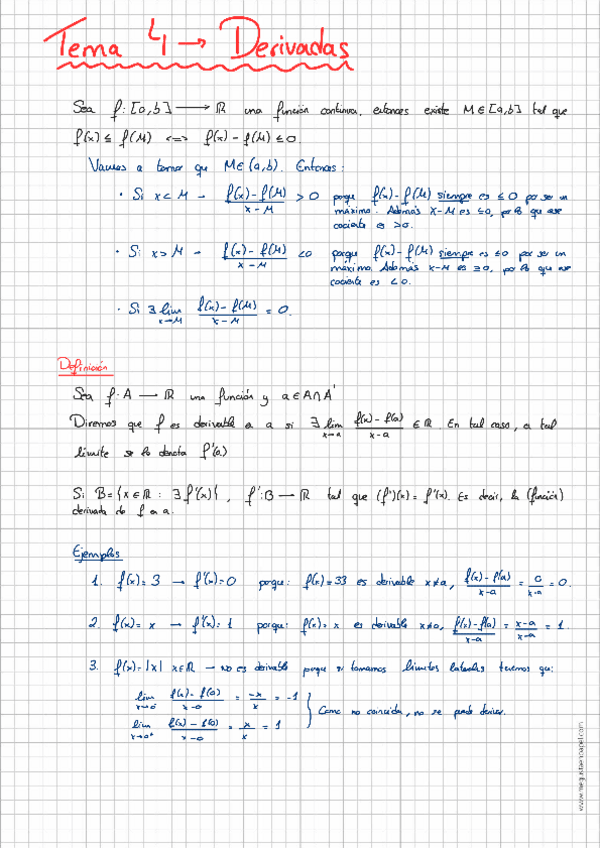 Tema 4 → Derivadas
Sea f: [a,b] → ℝ una función continua, entonces existe M∈[a,b] tal que
f(x) ≤ f(M) <=> f(x) - f(M) ≤ 0.
Vamos a tomar que M∈(a,b). Entonces:
· Si x<M - (f(x) - f(M))/(x-M) > 0 porque f(x) - f(M) siempre es ≤ 0 por ser un
máximo. Además x-M es ≤0, por lo que ese
cociente es >0.
· Si x>M - (f(x) - f(M))/(x-M) <0 porque f(x) - f(M) siempre es ≤0 por ser un
máximo. Además x-M es ≥0, por lo que ese
cociente es <0.
· Si ∃ lim x→M (f(x) - f(M))/(x-M) = 0.
Definición
Sea f: A → ℝ una función y a∈A∩A'
Diremos que f es derivable en a si ∃ lim x→a (f(x) - f(a))/(x-a) ∈ ℝ. En tal caso, a tal
límite se lo denota f'(a)
Si B={x∈ℝ : ∃ f'(x)}, f': B → ℝ tal que (f')(x) = f'(x). Es decir, la (función)
derivada de f en a.
Ejemplos
1. f(x)= 3 → f'(x)=0 porque: f(x)=33 es derivable x≠a, (f(x) - f(a))/(x-a) = 0/(x-a) = 0.
2. f(x)= x → f'(x)= 1 porque: f(x)= x es derivable x≠a, (f(x) - f(a))/(x-a) = (x-a)/(x-a) = 1.
3. f(x)= |x| x∈ℝ → no es derivable porque si tomamos límites laterales tenemos que:
lim x→0⁻ (f(x) - f(0))/(x-0) = -x/x = -1
lim x→0⁺ (f(x) - f(0))/(x-0) = x/x = 1 } Como no coincide, no se puede derivar.